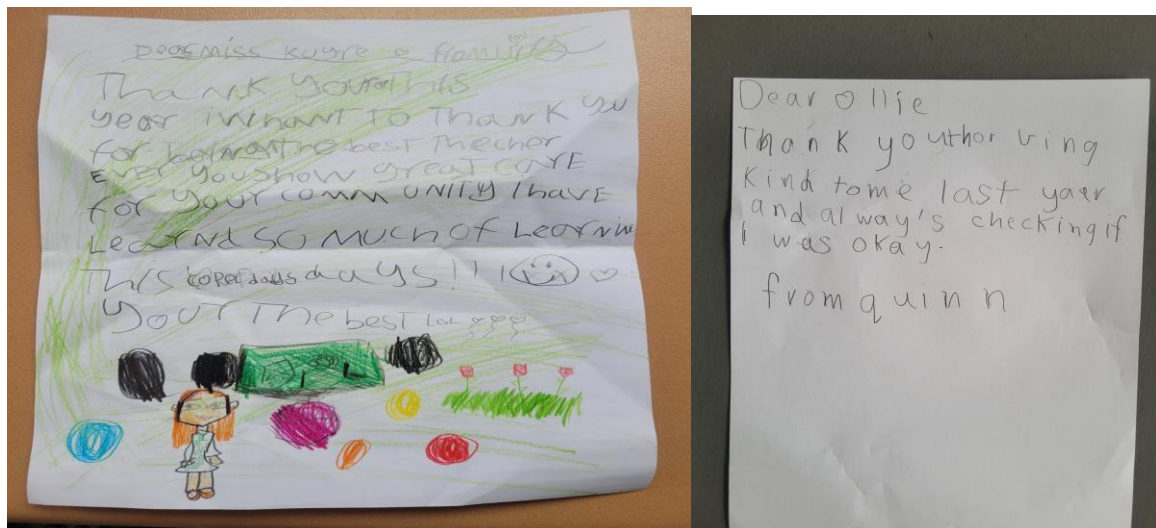 Dear miss Kuyre from
Thank you this
year i whant to Thank you
for being the best Thecher
Ever you show great care
for your community I have
Learnd so much of Learnin
This days!!
your The best Lol
Dear Ollie
Thank you thor ving
Kind to me last yaer
and alway's checking if
I was okay.
from quinn